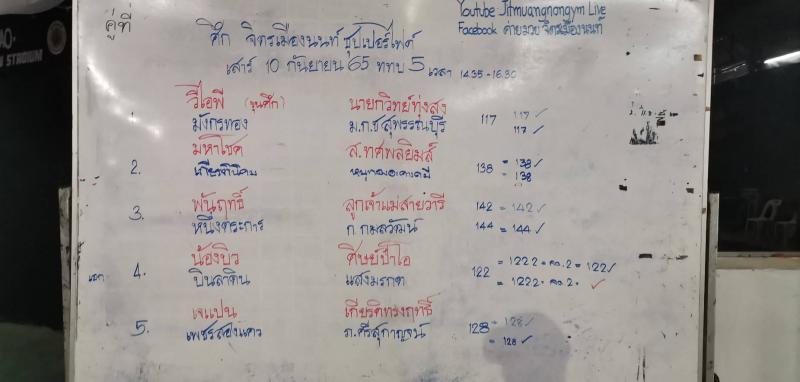 Youtube Jitmuangnongym Live
Facebook ค่ายมวย จิตรเมืองนนท์
คู่ที่
ศึก จิตรเมืองนนท์ ซุปเปอร์ไฟต์
เสาร์ 10 กันยายน 65 ททบ 5 เวลา 14.35-16.30
STADIUM
วีไอพี (ขุนศึก) นายกวิทย์ทุ่งสง 117 117 ✓
มังกรทอง ม.ก.ช สุพรรณบุรี 117 ✓
มหาโชค ส.ทศพลยิมส์ = 138 ✓
2. เกียรตินิคม 138 = 138
3. พันฤทธิ์ ลูกเจ้าแม่สายวารี 142 = 142 ✓
หนึ่งตระการ ก.กมลวัฒน์ 144 = 144 ✓
น้องบิว ศิษย์ป๋าไอ = 1222 = คว.2 = 122 ✓
4. บินลาดิน แสงมรกต 122 = 1222 = คว.2 = ✓
เจแปน เกียรติทรงฤทธิ์ = 128 ✓
5. เพชรสองแคว ภ.ศรีสุกาญจน์ 128 = 128 ✓